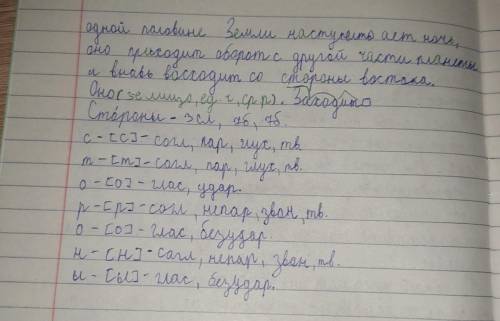 одной половине Земли наступить ает ночь,
оно приходит оборот с другой части планеты
и вновь восходит со стороны востока.
Оно( 3е лицо, ед.ч, ср.р). Заходит
Сто́роны - 3сл, 7б, 7б.
с - [С] - согл, пар, глух, тв.
т - [т] - согл, пар, глух, тв.
о - [о] - глас, удар.
р - [р] - согл, непар, звон, тв.
о - [о] - глас, безудар.
н - [н] - согл, непар, звон, тв.
ы - [ы] - глас, безудар.